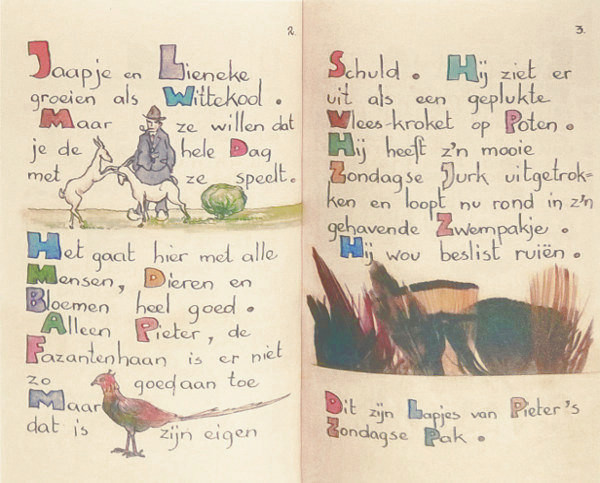 2.
Jaapje en Lieneke
groeien als Wittekool.
Maar ze willen dat
je de hele Dag
met ze speelt.
Het gaat hier met alle
Mensen, Dieren en
Bloemen heel goed.
Alleen Pieter, de
Fazantenhaan is er niet
zo goed aan toe
Maar
dat is zijn eigen
3.
Schuld. Hij ziet er
uit als een geplukte
Vlees-kroket op Poten.
Hij heeft z'n mooie
Zondagse Jurk uitgetrok=
ken en loopt nu rond in z'n
gehavende Zwempakje.
Hij wou beslist ruiën.
Dit zijn Lapjes van Pieter's
Zondagse Pak.